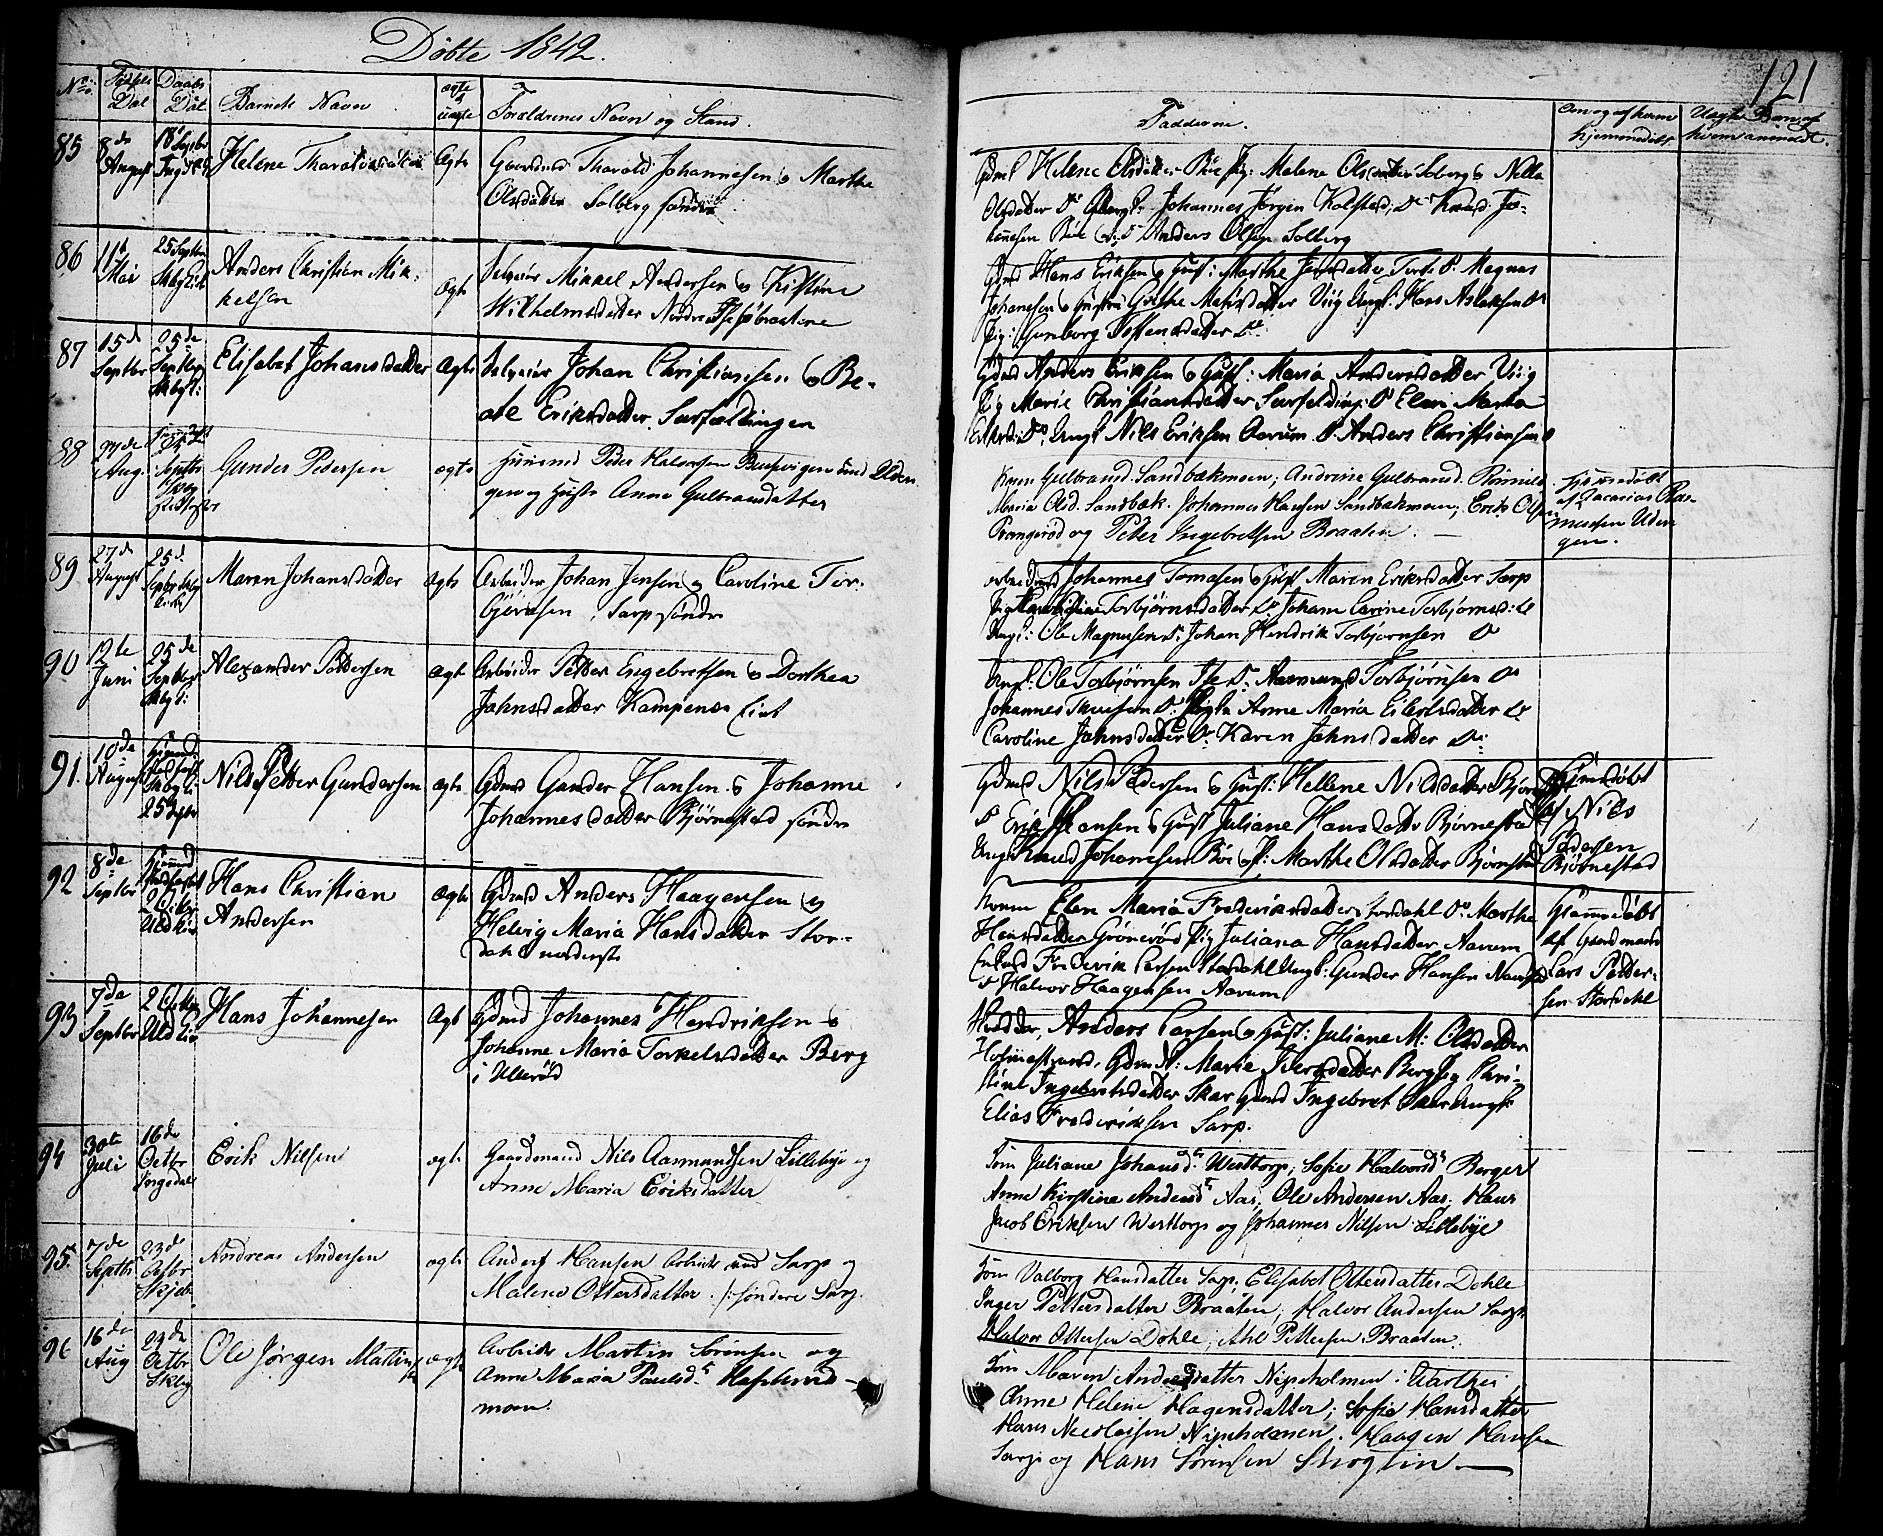 Döbte 1842.
121
No.
Födsls Dat
Daabs Dat
Barnets Navn
ægte uægte
Forældrenes Navn og Stand.
Faddere.
Om og af hvem hjemmedöbt
Uægte Barn af hvem anmeldt.
85
8de August
18 Septbr
Helene Tharalds
Ægte
Gaardmd Tharald Johannesen og Marthe
Olsdatter Solberg söndre
Gdmd Helene Olsdatter Böe Pig: Malene Olsdatter Solberg Nella
Olsdatter Do Ungk: Johannes Jörgen Kolstad, Do Knud Jo-
hannesen Böe Do Anders Olsen Solberg
86
11te Mai
25 Septbr
Anders Christian Mik-
kelsen
Ægte
Selveier Mikkel Andersen og Kistine
Wilhelmsdatter Nordre
Gdmd Hans Eriksen og Hust: Marthe Jensdatter Torts Do Magnus
Johannesen og Hustru Grethe Mathisdatter Viig Ungk: Hans Aslaksen Do
Pig: Gunborg Tostensdatter Do
87
15de Septbr
25de Septbr
Elisabet Johansdatter
Ægte
Selveier Johan Christiansen og Be-
ate Eriksdatter Surfældingen
Gdmd Anders Eriksen og Hust: Maria Andersdatter Viig
Pig Marie Christiansdatter Surfelding: Do Elen Marta
Eriksd: Do. Ungk Nils Eriksen Aarum Do Anders Christiansen Do
88
27de Aug.
25 Septbr
Gunder Pedersen
ægte
Huusmd Peder Halvorsen Buskvigen und Uden
gen og Hustr Anne Gulbransdatter
Karen Gulbransd. Sandbækmoen; Andrine Gulbransd. Rönnild
Maria Olsd. Sandbæk. Johannes Hansen Sandbækmoen; Erik Olsen
Prangeröd og Peder Ingebretsen Braaten.
Hjemmedöbt
af Zacarias Ras-
mussen Uden
gen.
89
27de August
25de Septbr
Maren Johansdatter
ægte
Arbeider Johan Jensen og Caroline Tor-
björnsen, Sarp söndre
arbeidsmd Johannes Tomasen og Hust Maren Eriksdatter Sarp
Pig Torbjörnsdatter Do Johane Carine Torbjornsd: Do
Ungk: Ole Magnusen Do: Johan Hendrik Torbjornsen Do
90
12te Juni
25de Septbr
Alexander Peddersen
Ægte
Arbeider Pedder Engebretsen og Dorthea
Jahnsdatter Kampenes Eiet
Ungk: Ole Torbjörnsen Do Aamund Torbjörnsen Do
Johannes Do: Pigen Anne Maria Eilertsdatter Do
Caroline Jahnsdatter Do Karen Jahnsdatter Do:
91.
10de August
25 Septbr
Nils Petter Gundersen
ægte
Gdmd Gunder Hansen og Johanne
Johannesdatter Björnestad söndre
Gdmd Nils Pedersen og Hust: Hellene Nilsdatter Björnestad
Do Erik Hansen og Hust Juliane Hansdatter Björnestad
Ungk Knud Johannesen Böe og P: Marthe Olsdatter Björnstad
Hiemmedöbt
af Nils
Pedersen
Björnestad
92
8de Septbr
2 Oktbr
Hans Christian
Andersen
Ægte
Gdmd Anders Haagensen og
Helvig Maria Hansdatter Stor-
dahl nederste
Konen Elen Maria Frederiksdatter Stordahl Do: Marthe
Hansdatter Grönneröd Pig Juliana Hansdatter Aarum
Enkmd Frederik Larsen Stordahl Ungk: Gunder Hansen
Do Halvor Haagensen Aarum
Hiemmedöbt
af Gaardmand
Lars Pedder-
sen Stordahl
93
7de Septbr
2 Octbr
Hans Johannesen
Ægte
Gdmd Johannes Hendriksen og
Johanne Maria Torkelsdatter Berg
i Ulleröd
Anders Larsen og Hust: Juliane M: Olsdatter
Holmestrand, Gdm K: Marie Iversdatter Berg Pig Chri-
stine Ingebretsdatter Skar Gdmd Ingebret Skar Ungk
Elias Frederiksen Sarp.
94
30te Juli
16de Octbr
Ingedal
Erik Nilsen
ægte
Gaardmand Nils Aamundsen Lillebye og
Anne Maria Eriksdatter
Jom Juliane Johansdr Westtorp; Sofie Halvorsdr Berger
Anne Kirstine Andersdr Aas; Ole Andersen Aas. Hans
Jacob Eriksen Westtorp og Johannes Nilsen Lillebye
95.
7de Septbr
23de Octbr
Skjeb.
Andreas Andersen
ægte
Anders Hansen Arbeids md Sarp og
Malene Ottersdatter. /:söndere Sarp.
Jom Valborg Hansdatter Sarp; Elisabet Ottersdatter Dohle
Inger Pettersdatter Braaten; Halvor Andersen Sarp
Halvor Ottersen Dohle; Ahl Pettersen Braaten.
96
16de Aug
23de Octbr
Skbg
Ole Jörgen Martin
ægte
Arbeids Martin Sörensen og
Anne Maria Paulsdr Hafslund-
moen.
Jom Maren Andersdatter Nipeholmen
Anne Helene Hagensdatter; Sofie Hansdatter
Hans Nicolaisen Nipeholmen. Haagen Hansen
Sarp og Hans Sörensen Skogtin